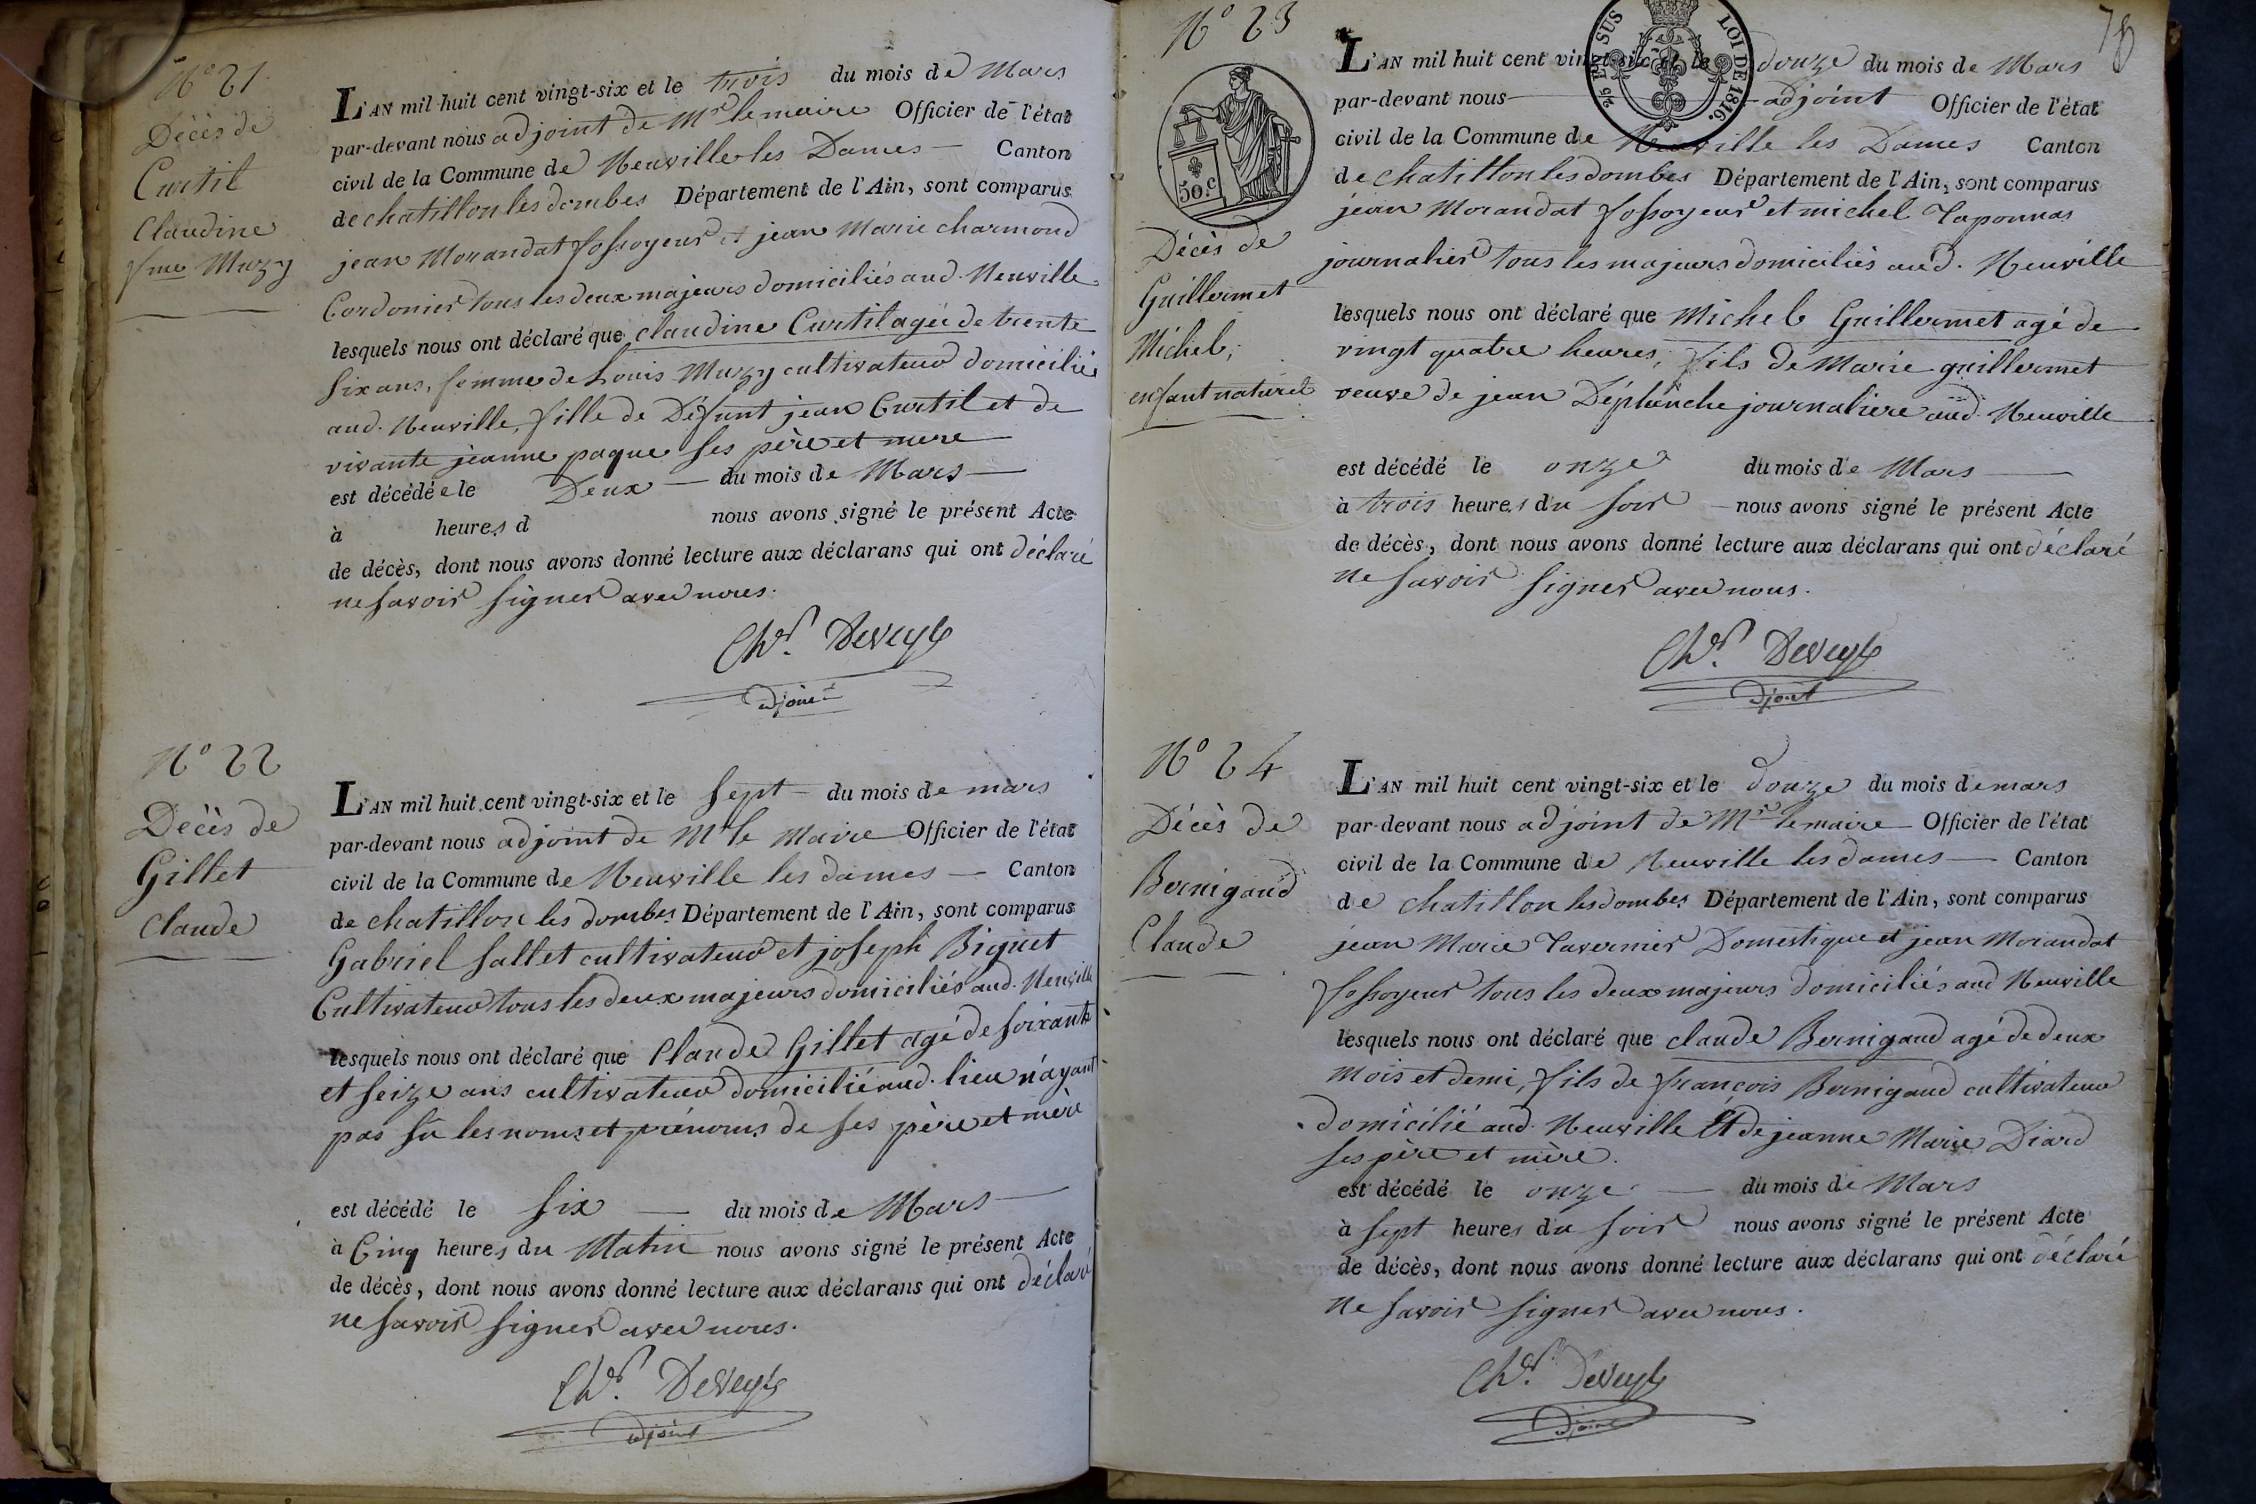 N° 21.
Décès de
Curtil
Claudine
fme Muzy
L'AN mil huit cent vingt-six et le trois du mois de Mars
par-devant nous adjoint de Mr le maire Officier de l'état
civil de la Commune de Neuville les Dames — Canton
de chatillon les dombes Département de l'Ain, sont comparus
jean Morandat fossoyeur et jean Marie charmond
Cordonier tous les deux majeurs domiciliés aud. Neuville
lesquels nous ont déclaré que claudine Curtil agée de trente
six ans, femme de Louis Muzy cultivateur domicilié
aud. Neuville, fille de Défunt jean Curtil et de
vivante jeanne paque ses père et mere
est décédée le Deux — du mois de Mars —
à heures d nous avons signé le présent Acte
de décès, dont nous avons donné lecture aux déclarans qui ont déclaré
ne savoir signer avec nous.
Chr. Deveyle
adjoint
N° 22
Décès de
Gillet
Claude
L'AN mil huit cent vingt-six et le sept — du mois de mars
par-devant nous adjoint de Mr le Maire Officier de l'état
civil de la Commune de Neuville les dames — Canton
de chatillon les dombes Département de l'Ain, sont comparus
Gabriel Sallet cultivateur et joseph Biguet
Cultivateur tous les deux majeurs domiciliés aud. Neuville
lesquels nous ont déclaré que Claude Gillet agé de soixante
et seize ans cultivateur domicilié aud. lieu n'ayant
pas sû les noms et prénoms de ses père et mère
est décédé le six — du mois de Mars —
à Cinq heures du Matin nous avons signé le présent Acte
de décès, dont nous avons donné lecture aux déclarans qui ont déclaré
ne savoir signer avec nous.
Chr. Deveyle
adjoint
78
N° 23
50.c
25 EN SUS LOI DE 1816.
Décès de
Guillermet
Michel,
enfant naturel
L'AN mil huit cent vingt-six et le douze du mois de Mars
par-devant nous — adjoint Officier de l'état
civil de la Commune de Neuville les Dames Canton
de chatillon les dombes Département de l'Ain, sont comparus
jean Morandat fossoyeur et michel Taponnas
journalier tous les majeurs domiciliés aud. Neuville
lesquels nous ont déclaré que Michel Guillermet agé de
vingt quatre heures, fils de Marie guillermet
veuve de jean Déplanche journaliere aud. Neuville
est décédé le onze du mois de Mars —
à trois heures du soir — nous avons signé le présent Acte
de décès, dont nous avons donné lecture aux déclarans qui ont déclaré
ne savoir signer avec nous.
Chr. Deveyle
adjoint
N° 24
Décès de
Bernigaud
Claude
L'AN mil huit cent vingt-six et le douze du mois de mars
par-devant nous adjoint de Mr le maire Officier de l'état
civil de la Commune de Neuville les dames — Canton
de chatillon les dombes Département de l'Ain, sont comparus
jean Marie Tavernier Domestique et jean Morandat
fossoyeur tous les deux majeurs domiciliés aud Neuville
lesquels nous ont déclaré que claude Bernigaud agé de deux
mois et demi, fils de françois Bernigaud cultivateur
domicilié aud. Neuville Et de jeanne Marie Diard
ses père et mère.
est décédé le onze — du mois de Mars
à sept heures du soir nous avons signé le présent Acte
de décès, dont nous avons donné lecture aux déclarans qui ont déclaré
ne savoir signer avec nous.
Chr. Deveyle
adjoint